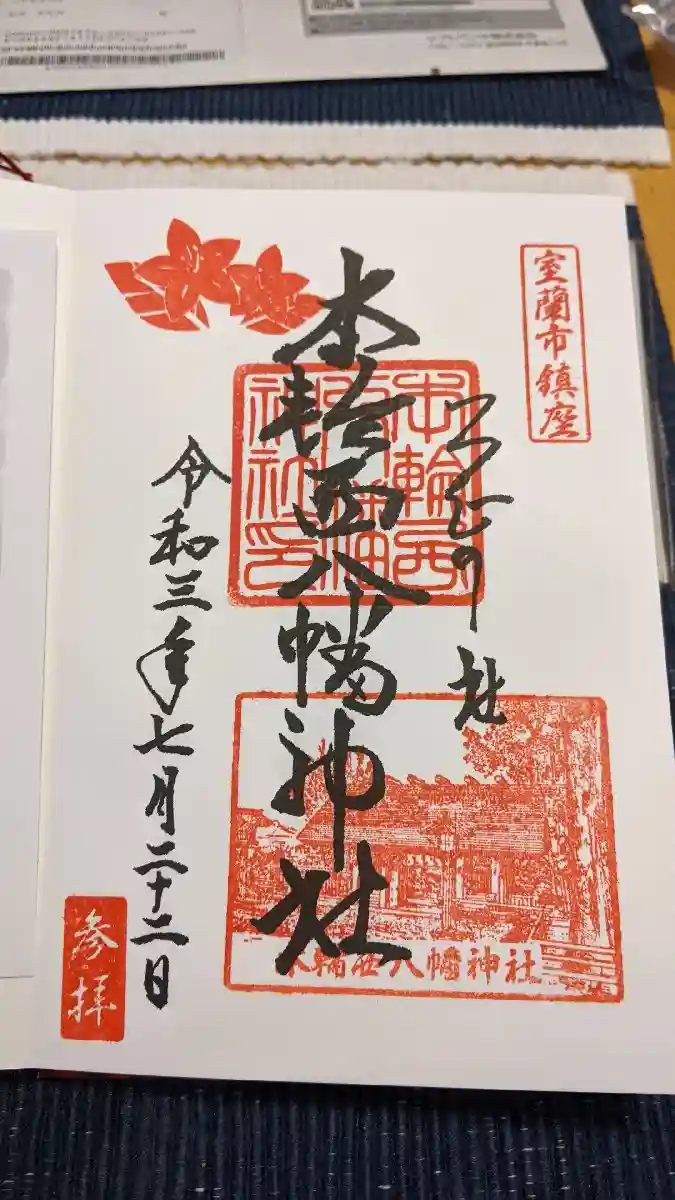 室蘭市鎮座
つつじの社
本輪西八幡神社
本輪西八幡神社印
本輪西八幡神社
令和三年七月二十二日
参拝